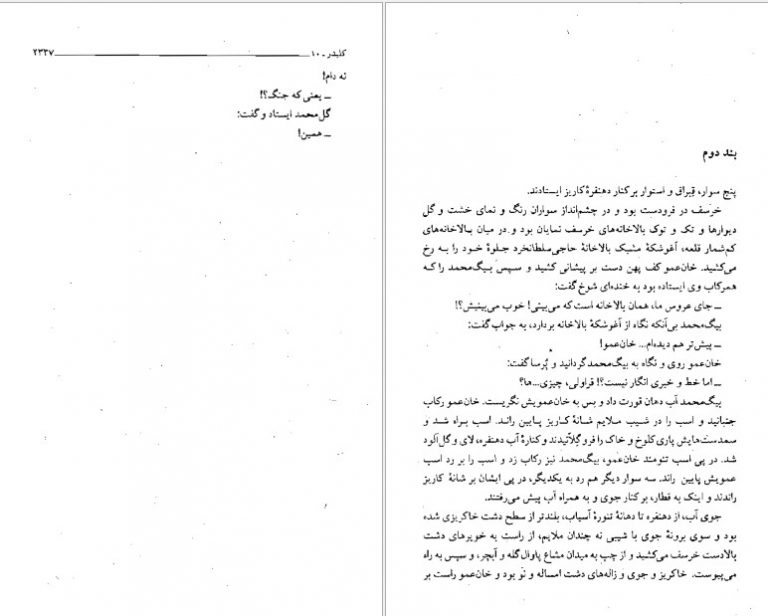 کلیدر ـ ۱۰ ۲۳۳۷
نه دام!
ـ یعنی که جنگ؟!
گل‌محمد ایستاد و گفت:
ـ همین!
بند دوم
پنج سوار، قبراق و استوار بر کنار دهنفرهٔ کاریز ایستادند.
خرسف در فرودست بود و در چشم‌انداز سواران رنگ و نمای خشت و گل
دیوارها و تک و توک بالاخانه‌های خرسف نمایان بود و در میان بالاخانه‌های
کم‌شمار قلعه، آغوشکهٔ مشبک بالاخانهٔ حاجی‌سلطانخرد جلوهٔ خود را به رخ
می‌کشید. خان‌عمو کف پهن دست بر پیشانی کشید و سپس بیگ‌محمد را که
همرکاب وی ایستاده بود به خنده‌ای شوخ گفت:
ـ جای عروس ما، همان بالاخانه است که می‌بینی! خوب می‌بینیش؟!
بیگ‌محمد بی‌آنکه نگاه از آغوشکهٔ بالاخانه بردارد، به جواب گفت:
ـ پیش‌تر هم دیده‌ام... خان‌عمو!
خان‌عمو روی و نگاه به بیگ‌محمد گردانید و پُرسا گفت:
ـ اما خط و خبری انگار نیست؟! قراولی، چیزی...ها؟
بیگ‌محمد آب دهان قورت داد و بس به خان‌عمویش نگریست. خان‌عمو رکاب
جنبانید و اسب را در شیب ملایم شانهٔ کاریز پایین راند. اسب براه شد و
سمدست‌هایش پاری کلوخ و خاک را فرو گلاّنیدند و کنارهٔ آب دهنفره، لای و گل‌آلود
شد. در پی اسب تنومند خان‌عمو، بیگ‌محمد نیز رکاب زد و اسب را بر رد اسب
عمویش پایین راند. سه سوار دیگر هم رد به یکدیگر، در پی ایشان بر شانهٔ کاریز
راندند و اینک به قطار، بر کنار جوی و به همراه آب پیش می‌رفتند.
جوی آب، از دهنفره تا دهانهٔ تنورهٔ آسیاب، بلندتر از سطح دشت خاکریزی شده
بود و سوی برونهٔ جوی با شیبی نه چندان ملایم، از راست به خویرهای دشت
بالادست خرسف می‌کشید و از چپ به میدان مشاع پاوال‌گله و آبچر، و سپس به راه
می‌پیوست. خاکریز و جوی و زاله‌های دشت امساله و نَو بود و خان‌عمو راست بر